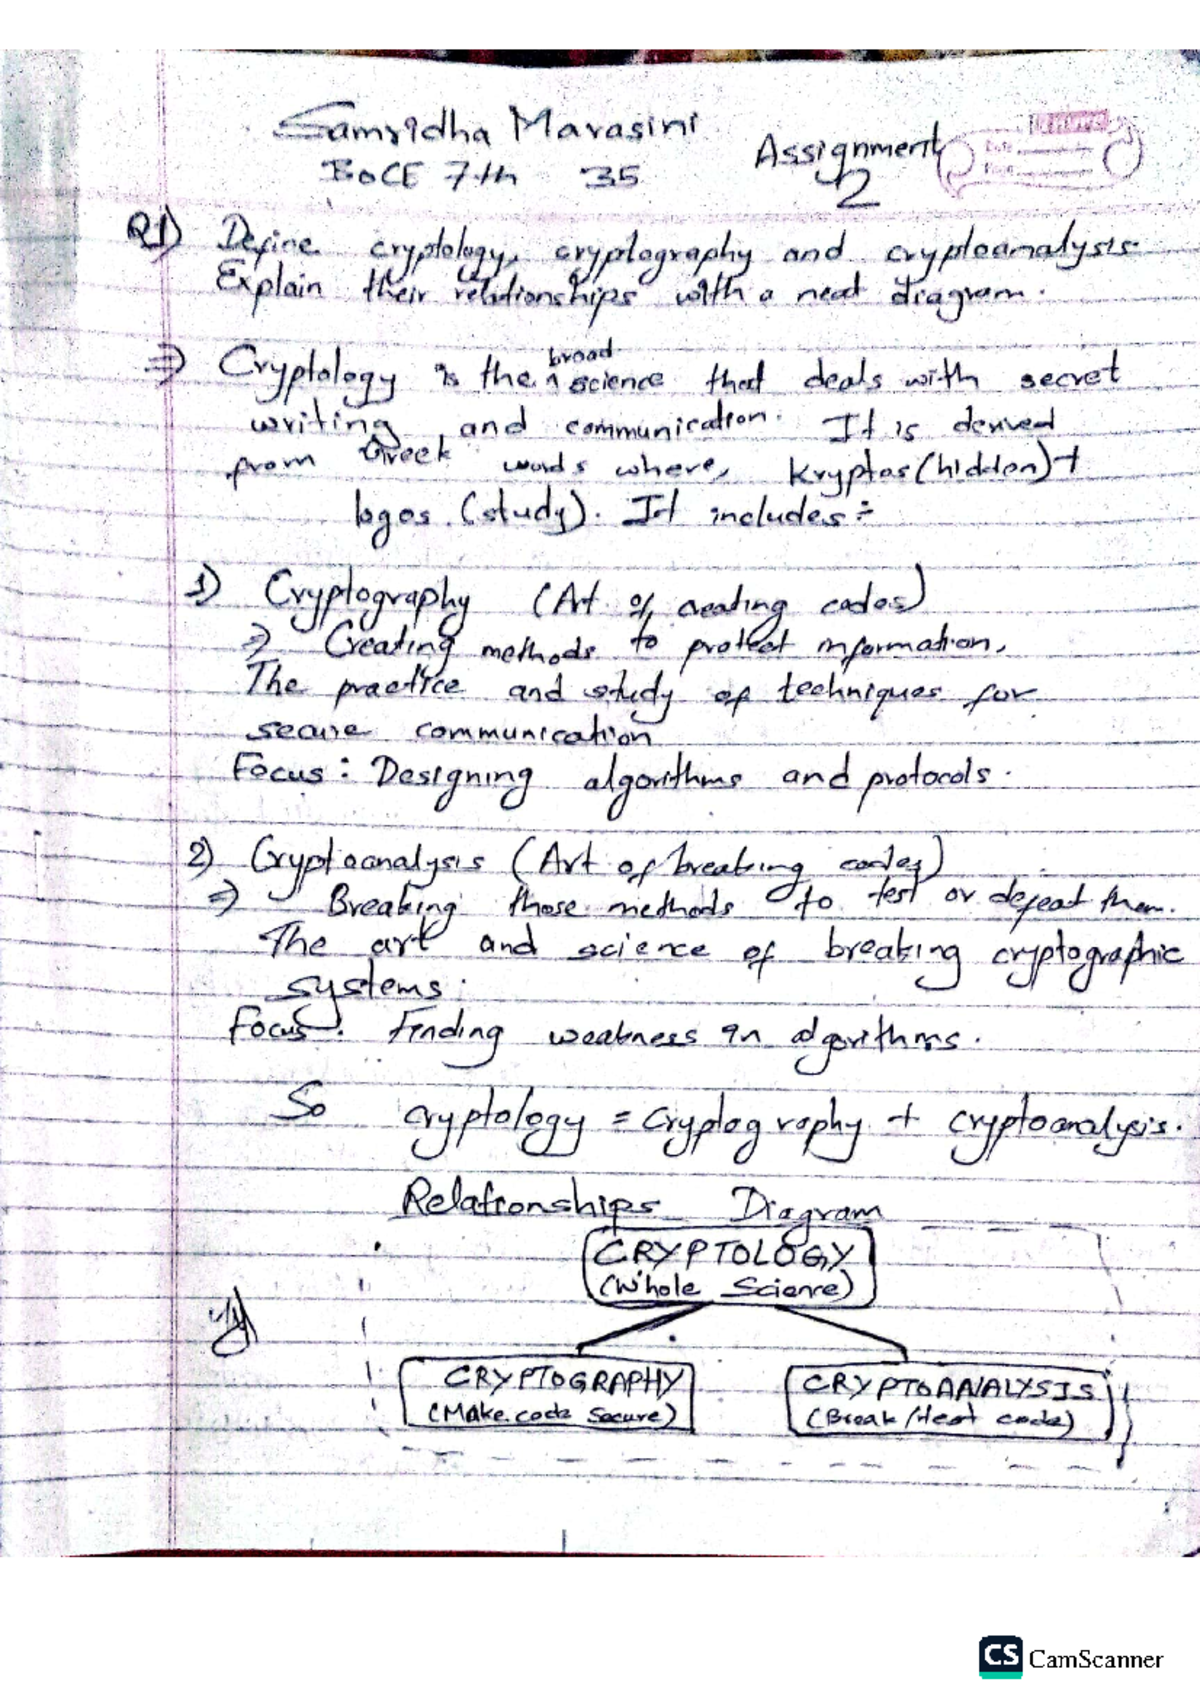 Samridha Marasini
BoCE 7th 35
Assignment
2
Q1) Define cryptology, cryptography and cryptoanalysis.
Explain their relationships with a neat diagram.
⇒ Cryptology is the broad science that deals with secret
writing and communication. It is derived
from Greek words where, kryptos(hidden)+
logos (study). It includes:-
1) Cryptography (Art of creating codes)
⇒ Creating methods to protect information,
The practice and study of techniques for
secure communication
Focus: Designing algorithms and protocols.
2) Cryptoanalysis (Art of breaking codes)
⇒ Breaking those methods to test or defeat them.
The art and science of breaking cryptographic
systems.
Focus: Finding weakness in algorithms.
So cryptology = cryptography + cryptoanalysis.
Relationships Diagram
CRYPTOLOGY
(Whole Science)
CRYPTOGRAPHY
(Make code Secure)
CRYPTOANALYSIS
(Break/test code)
CS CamScanner